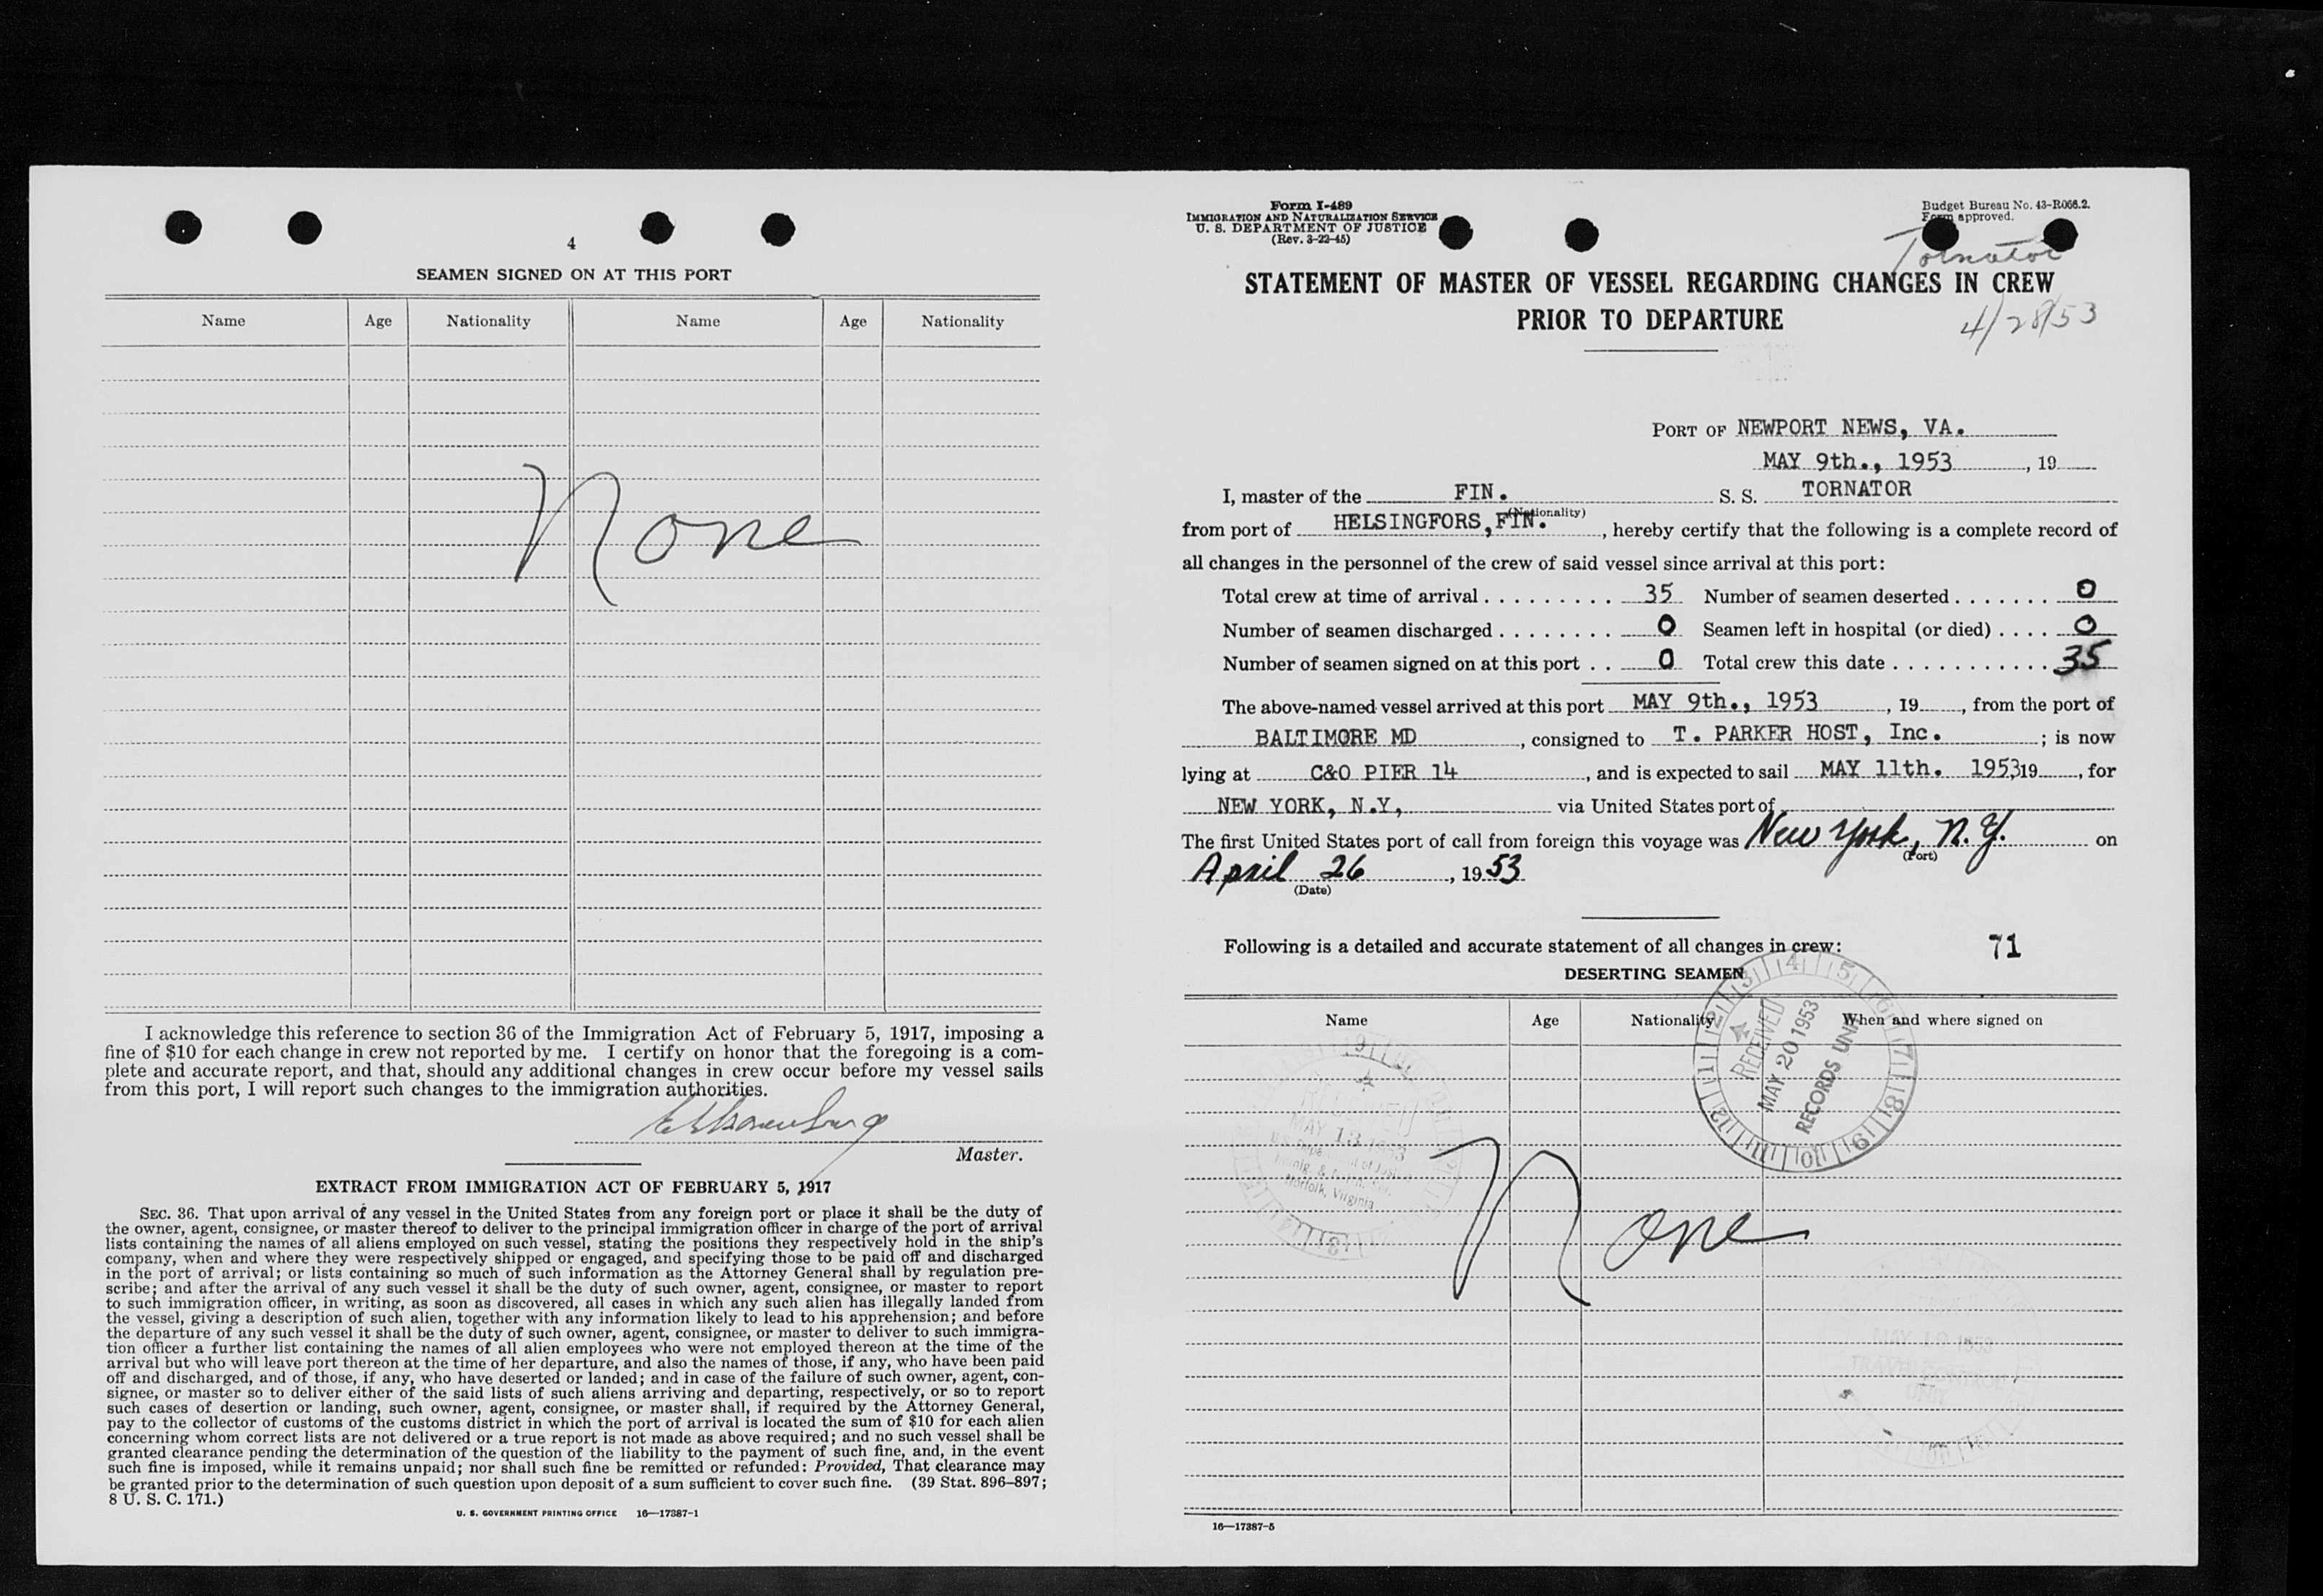 4
SEAMEN SIGNED ON AT THIS PORT
Name Age Nationality Name Age Nationality
None
I acknowledge this reference to section 36 of the Immigration Act of February 5, 1917, imposing a
fine of $10 for each change in crew not reported by me. I certify on honor that the foregoing is a com-
plete and accurate report, and that, should any additional changes in crew occur before my vessel sails
from this port, I will report such changes to the immigration authorities.
Master.
EXTRACT FROM IMMIGRATION ACT OF FEBRUARY 5, 1917
SEC. 36. That upon arrival of any vessel in the United States from any foreign port or place it shall be the duty of
the owner, agent, consignee, or master thereof to deliver to the principal immigration officer in charge of the port of arrival
lists containing the names of all aliens employed on such vessel, stating the positions they respectively hold in the ship's
company, when and where they were respectively shipped or engaged, and specifying those to be paid off and discharged
in the port of arrival; or lists containing so much of such information as the Attorney General shall by regulation pre-
scribe; and after the arrival of any such vessel it shall be the duty of such owner, agent, consignee, or master to report
to such immigration officer, in writing, as soon as discovered, all cases in which any such alien has illegally landed from
the vessel, giving a description of such alien, together with any information likely to lead to his apprehension; and before
the departure of any such vessel it shall be the duty of such owner, agent, consignee, or master to deliver to such immigra-
tion officer a further list containing the names of all alien employees who were not employed thereon at the time of the
arrival but who will leave port thereon at the time of her departure, and also the names of those, if any, who have been paid
off and discharged, and of those, if any, who have deserted or landed; and in case of the failure of such owner, agent, con-
signee, or master so to deliver either of the said lists of such aliens arriving and departing, respectively, or so to report
such cases of desertion or landing, such owner, agent, consignee, or master shall, if required by the Attorney General,
pay to the collector of customs of the customs district in which the port of arrival is located the sum of $10 for each alien
concerning whom correct lists are not delivered or a true report is not made as above required; and no such vessel shall be
granted clearance pending the determination of the question of the liability to the payment of such fine, and, in the event
such fine is imposed, while it remains unpaid; nor shall such fine be remitted or refunded: Provided, That clearance may
be granted prior to the determination of such question upon deposit of a sum sufficient to cover such fine. (39 Stat. 896–897;
8 U. S. C. 171.)
U. S. GOVERNMENT PRINTING OFFICE 16—17387-1
Form I-489
IMMIGRATION AND NATURALIZATION SERVICE
U. S. DEPARTMENT OF JUSTICE
(Rev. 3-22-45)
Budget Bureau No. 43-R066.2.
Form approved.
Tornator
STATEMENT OF MASTER OF VESSEL REGARDING CHANGES IN CREW
PRIOR TO DEPARTURE
4/28/53
PORT OF NEWPORT NEWS, VA.
MAY 9th., 1953, 19
I, master of the FIN. S. S. TORNATOR
(Nationality)
from port of HELSINGFORS, FIN., hereby certify that the following is a complete record of
all changes in the personnel of the crew of said vessel since arrival at this port:
Total crew at time of arrival . . . . . . . . . 35 Number of seamen deserted . . . . . . . 0
Number of seamen discharged . . . . . . . . 0 Seamen left in hospital (or died) . . . . 0
Number of seamen signed on at this port . . 0 Total crew this date . . . . . . . . . . . 35
The above-named vessel arrived at this port MAY 9th., 1953, 19, from the port of
BALTIMORE MD, consigned to T. PARKER HOST, Inc.; is now
lying at C&O PIER 14, and is expected to sail MAY 11th. 1953 19, for
NEW YORK, N.Y, via United States port of
The first United States port of call from foreign this voyage was New York, N.Y. on
(Port)
April 26, 1953
(Date)
Following is a detailed and accurate statement of all changes in crew: 71
DESERTING SEAMEN
Name Age Nationality When and where signed on
RECEIVED
MAY 20 1953
RECORDS UNIT
RECEIVED
MAY 13 1953
U.S. Department of Justice
Immig. & Natn. Ser.
Norfolk, Virginia
None
16—17387-5